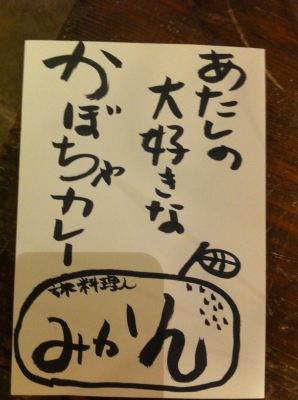 あたしの
大好きな
かぼちゃカレー
旅料理人
みかん